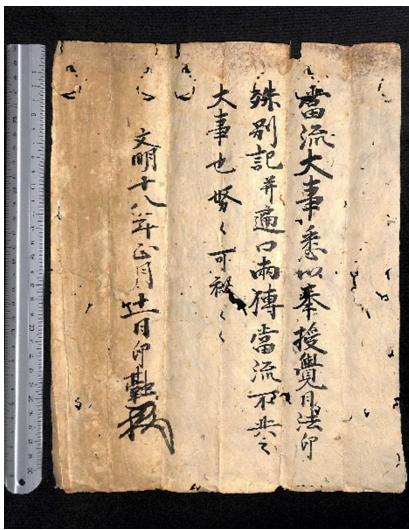 當流大事悉以奉授覺日法印
殊別記并適口両傳當流不共之
大事也努々可秘々々
文明十八年正月廿一日印融